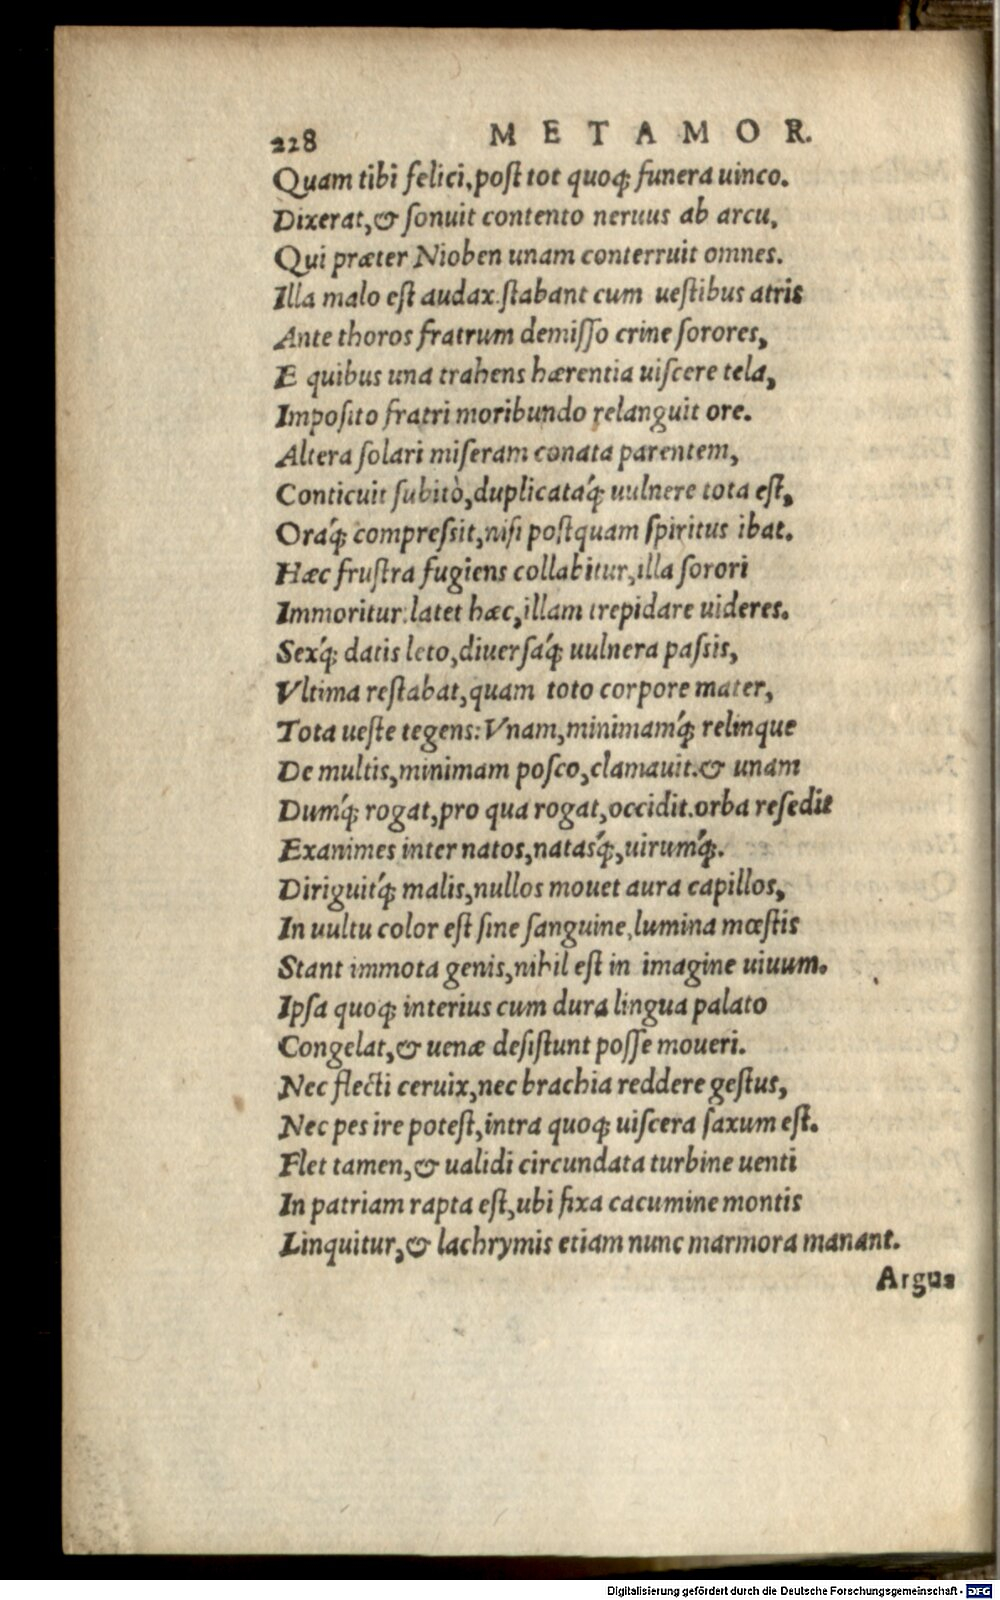 228 METAMOR.
Quam tibi felici, post tot quoq; funera uinco.
Dixerat, & sonuit contento neruus ab arcu,
Qui præter Nioben unam conterruit omnes.
Illa malo est audax. stabant cum uestibus atris
Ante thoros fratrum demisso crine sorores,
E quibus una trahens hærentia uiscere tela,
Imposito fratri moribundo relanguit ore.
Altera solari miseram conata parentem,
Conticuit subitò, duplicatáq; uulnere tota est,
Oráq; compressit, nisi postquam spiritus ibat.
Hæc frustra fugiens collabitur, illa sorori
Immoritur: latet hæc, illam trepidare uideres.
Sexq́; datis leto, diuersáq; uulnera passis,
Vltima restabat, quam toto corpore mater,
Tota ueste tegens: Vnam, minimamq́; relinque
De multis, minimam posco, clamauit. & unam
Dumq́; rogat, pro qua rogat, occidit. orba resedit
Exanimes inter natos, natasq́;, uirumq́;.
Diriguitq́; malis, nullos mouet aura capillos,
In uultu color est sine sanguine, lumina mœstis
Stant immota genis, nihil est in imagine uiuum.
Ipsa quoq; interius cum dura lingua palato
Congelat, & uenæ desistunt posse moueri.
Nec flecti ceruix, nec brachia reddere gestus,
Nec pes ire potest, intra quoq; uiscera saxum est.
Flet tamen, & ualidi circundata turbine uenti
In patriam rapta est, ubi fixa cacumine montis
Linquitur, & lachrymis etiam nunc marmora manant.
Argus
Digitalisierung gefördert durch die Deutsche Forschungsgemeinschaft - DFG